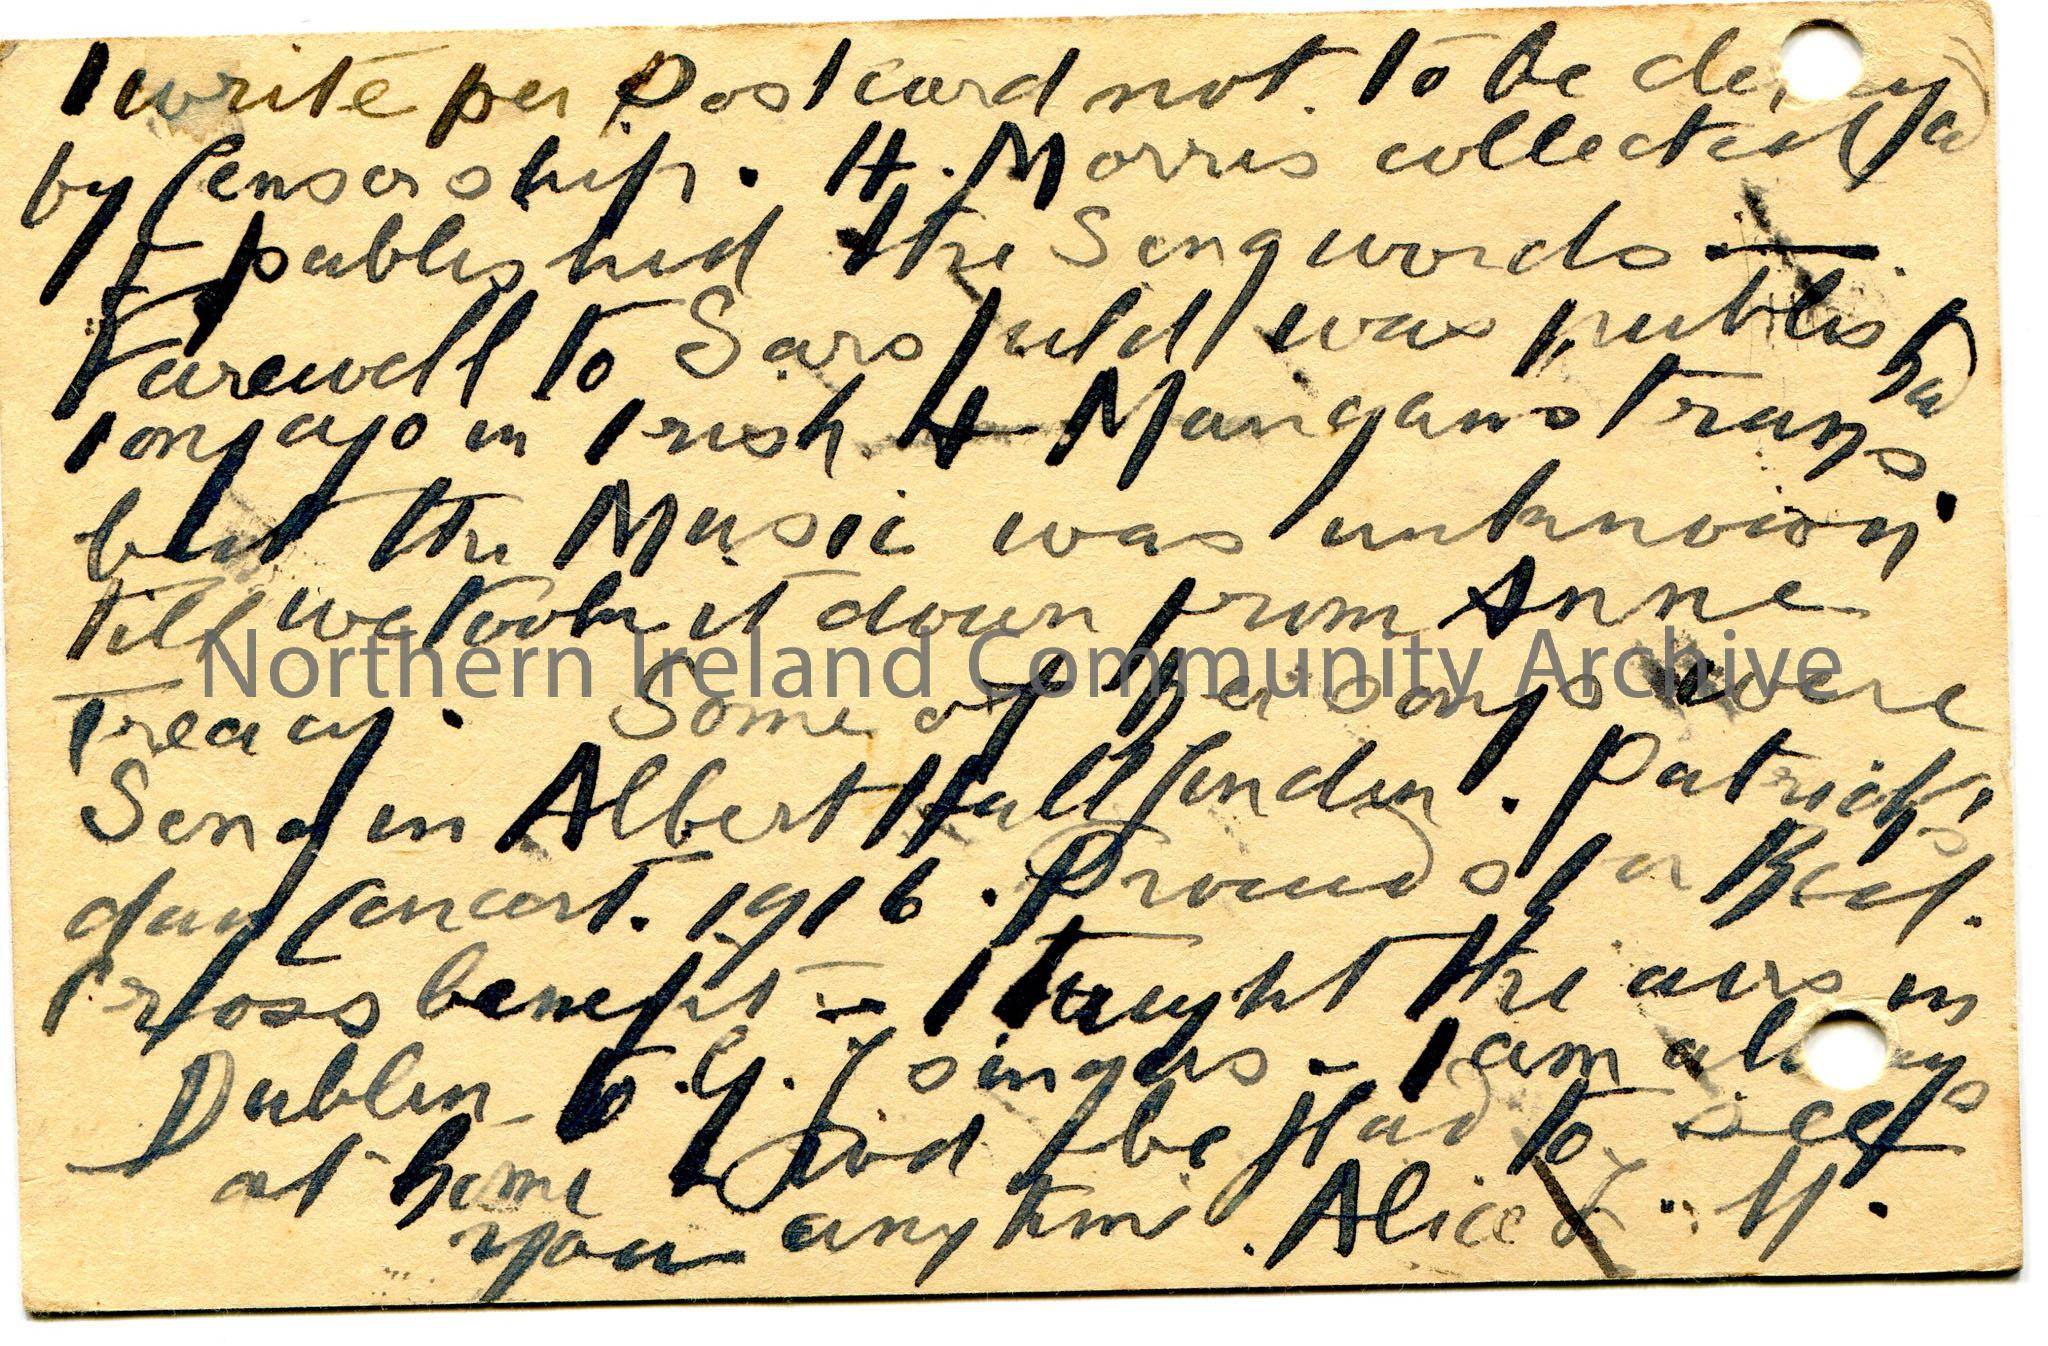 I write per Postcard not to be delayed
by Censorship. H. Morris collected
& published the Song words —.
Farewell to Sarsfield was published
long ago in Irish & Mangans trans.
but the Music was unknown
till we took it down from Anne
Treacy. Some of her songs were
Sung in Albert Hall London. Patrick's
day Concert. 1916. Proceeds for Red.
Cross benefit – I taught the airs in
Dublin to G. singers – I am always
at home & wd be glad to see
you anytime. Alice L. M.
Northern Ireland Community Archive